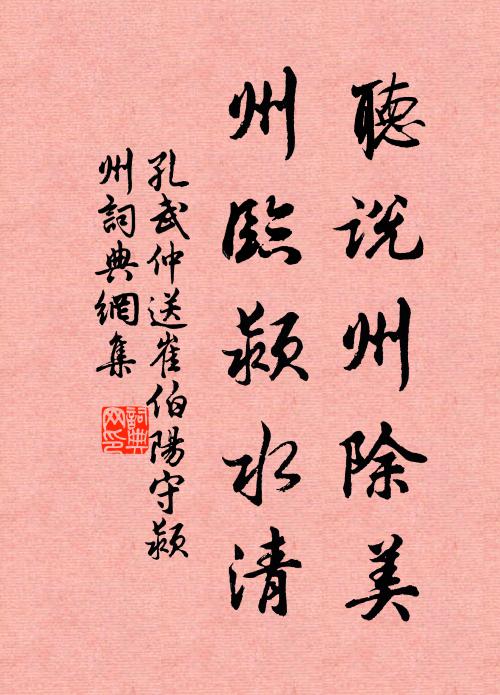 聽説州除美
州臨潁水清
孔武仲送崔伯陽守潁
州詞典網集
詞典網印